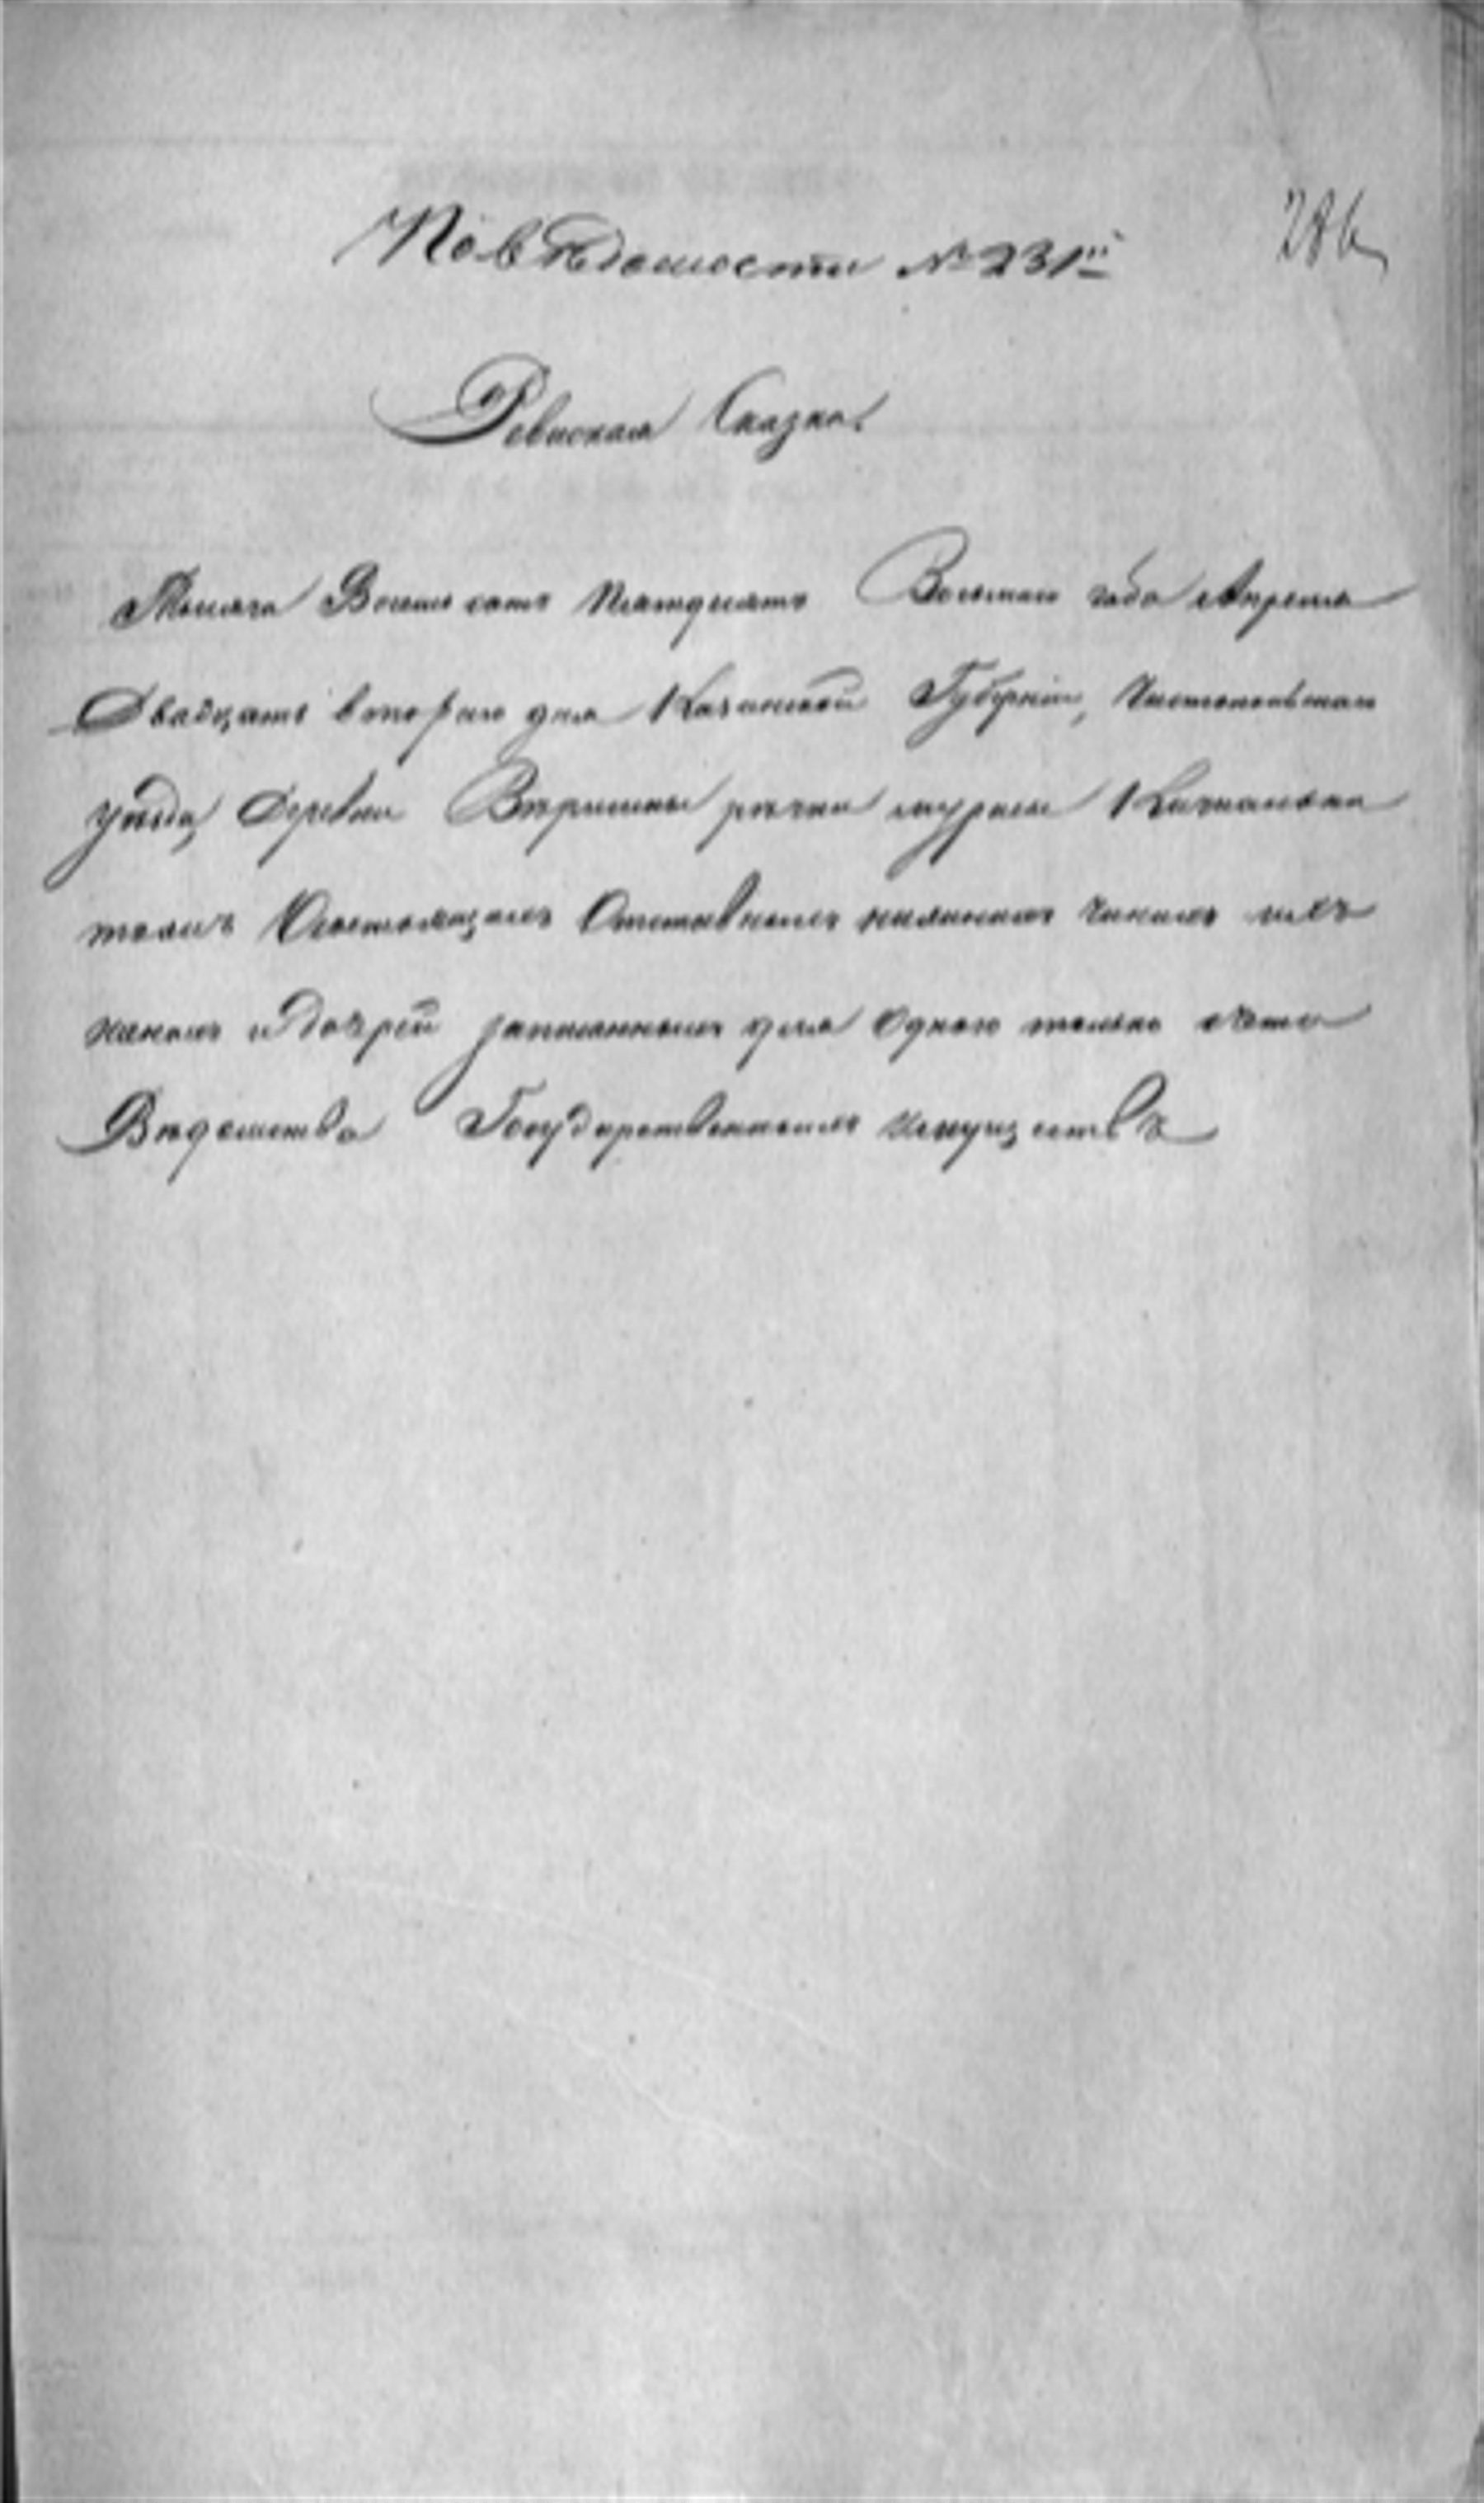 По вѣдомости № 231й
286
Ревиская Сказка.
Тысяча Восемь сотъ Пятдесятъ Восьмаго года Апреля
Двадцать втораго дня Казанской Губерніи, Чистопольскаго
уѣзда, Деревни Вершины рѣчки
тамъ Состоящимъ Отставнымъ нижнимъ чинамъ ихъ
женамъ и дочерей записаннымъ для одного только счета
Вѣдомства Государственныхъ Имуществъ